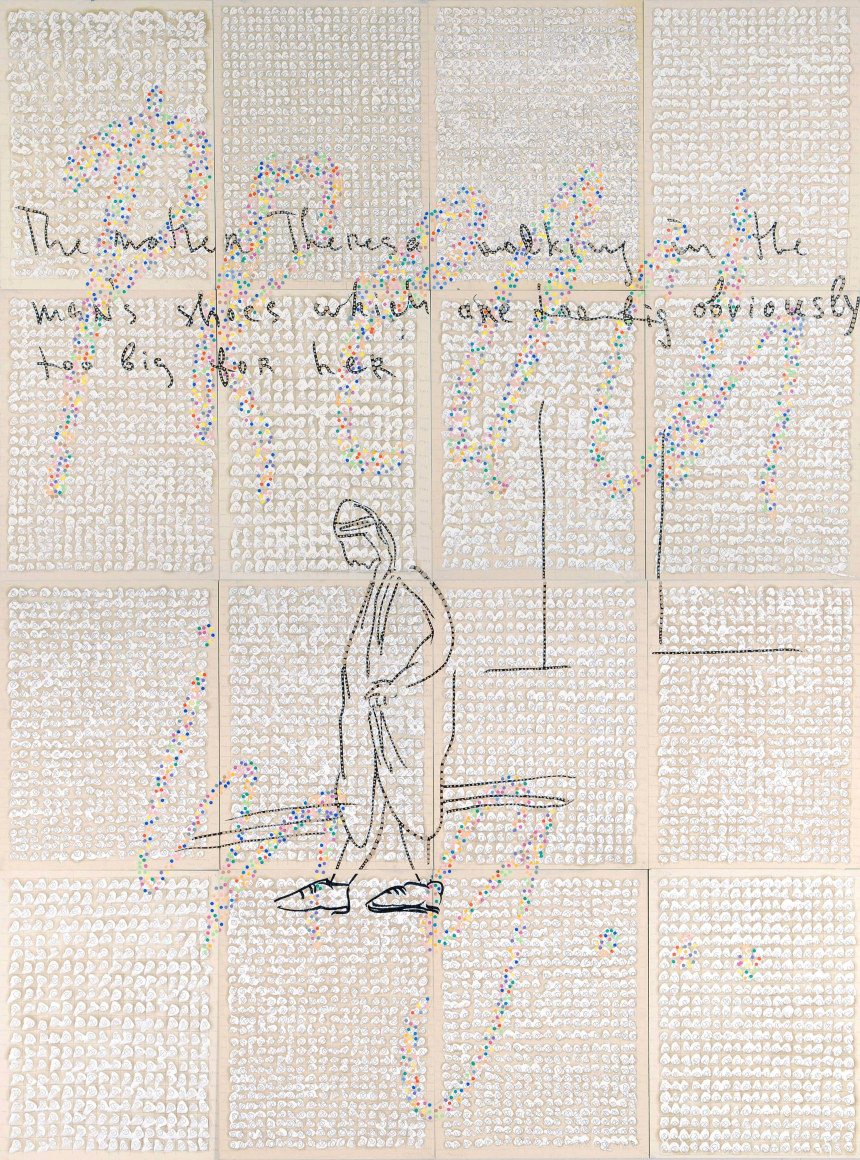 The mother Theresa walking in the
man's shoes which are too big obviously
too big for her